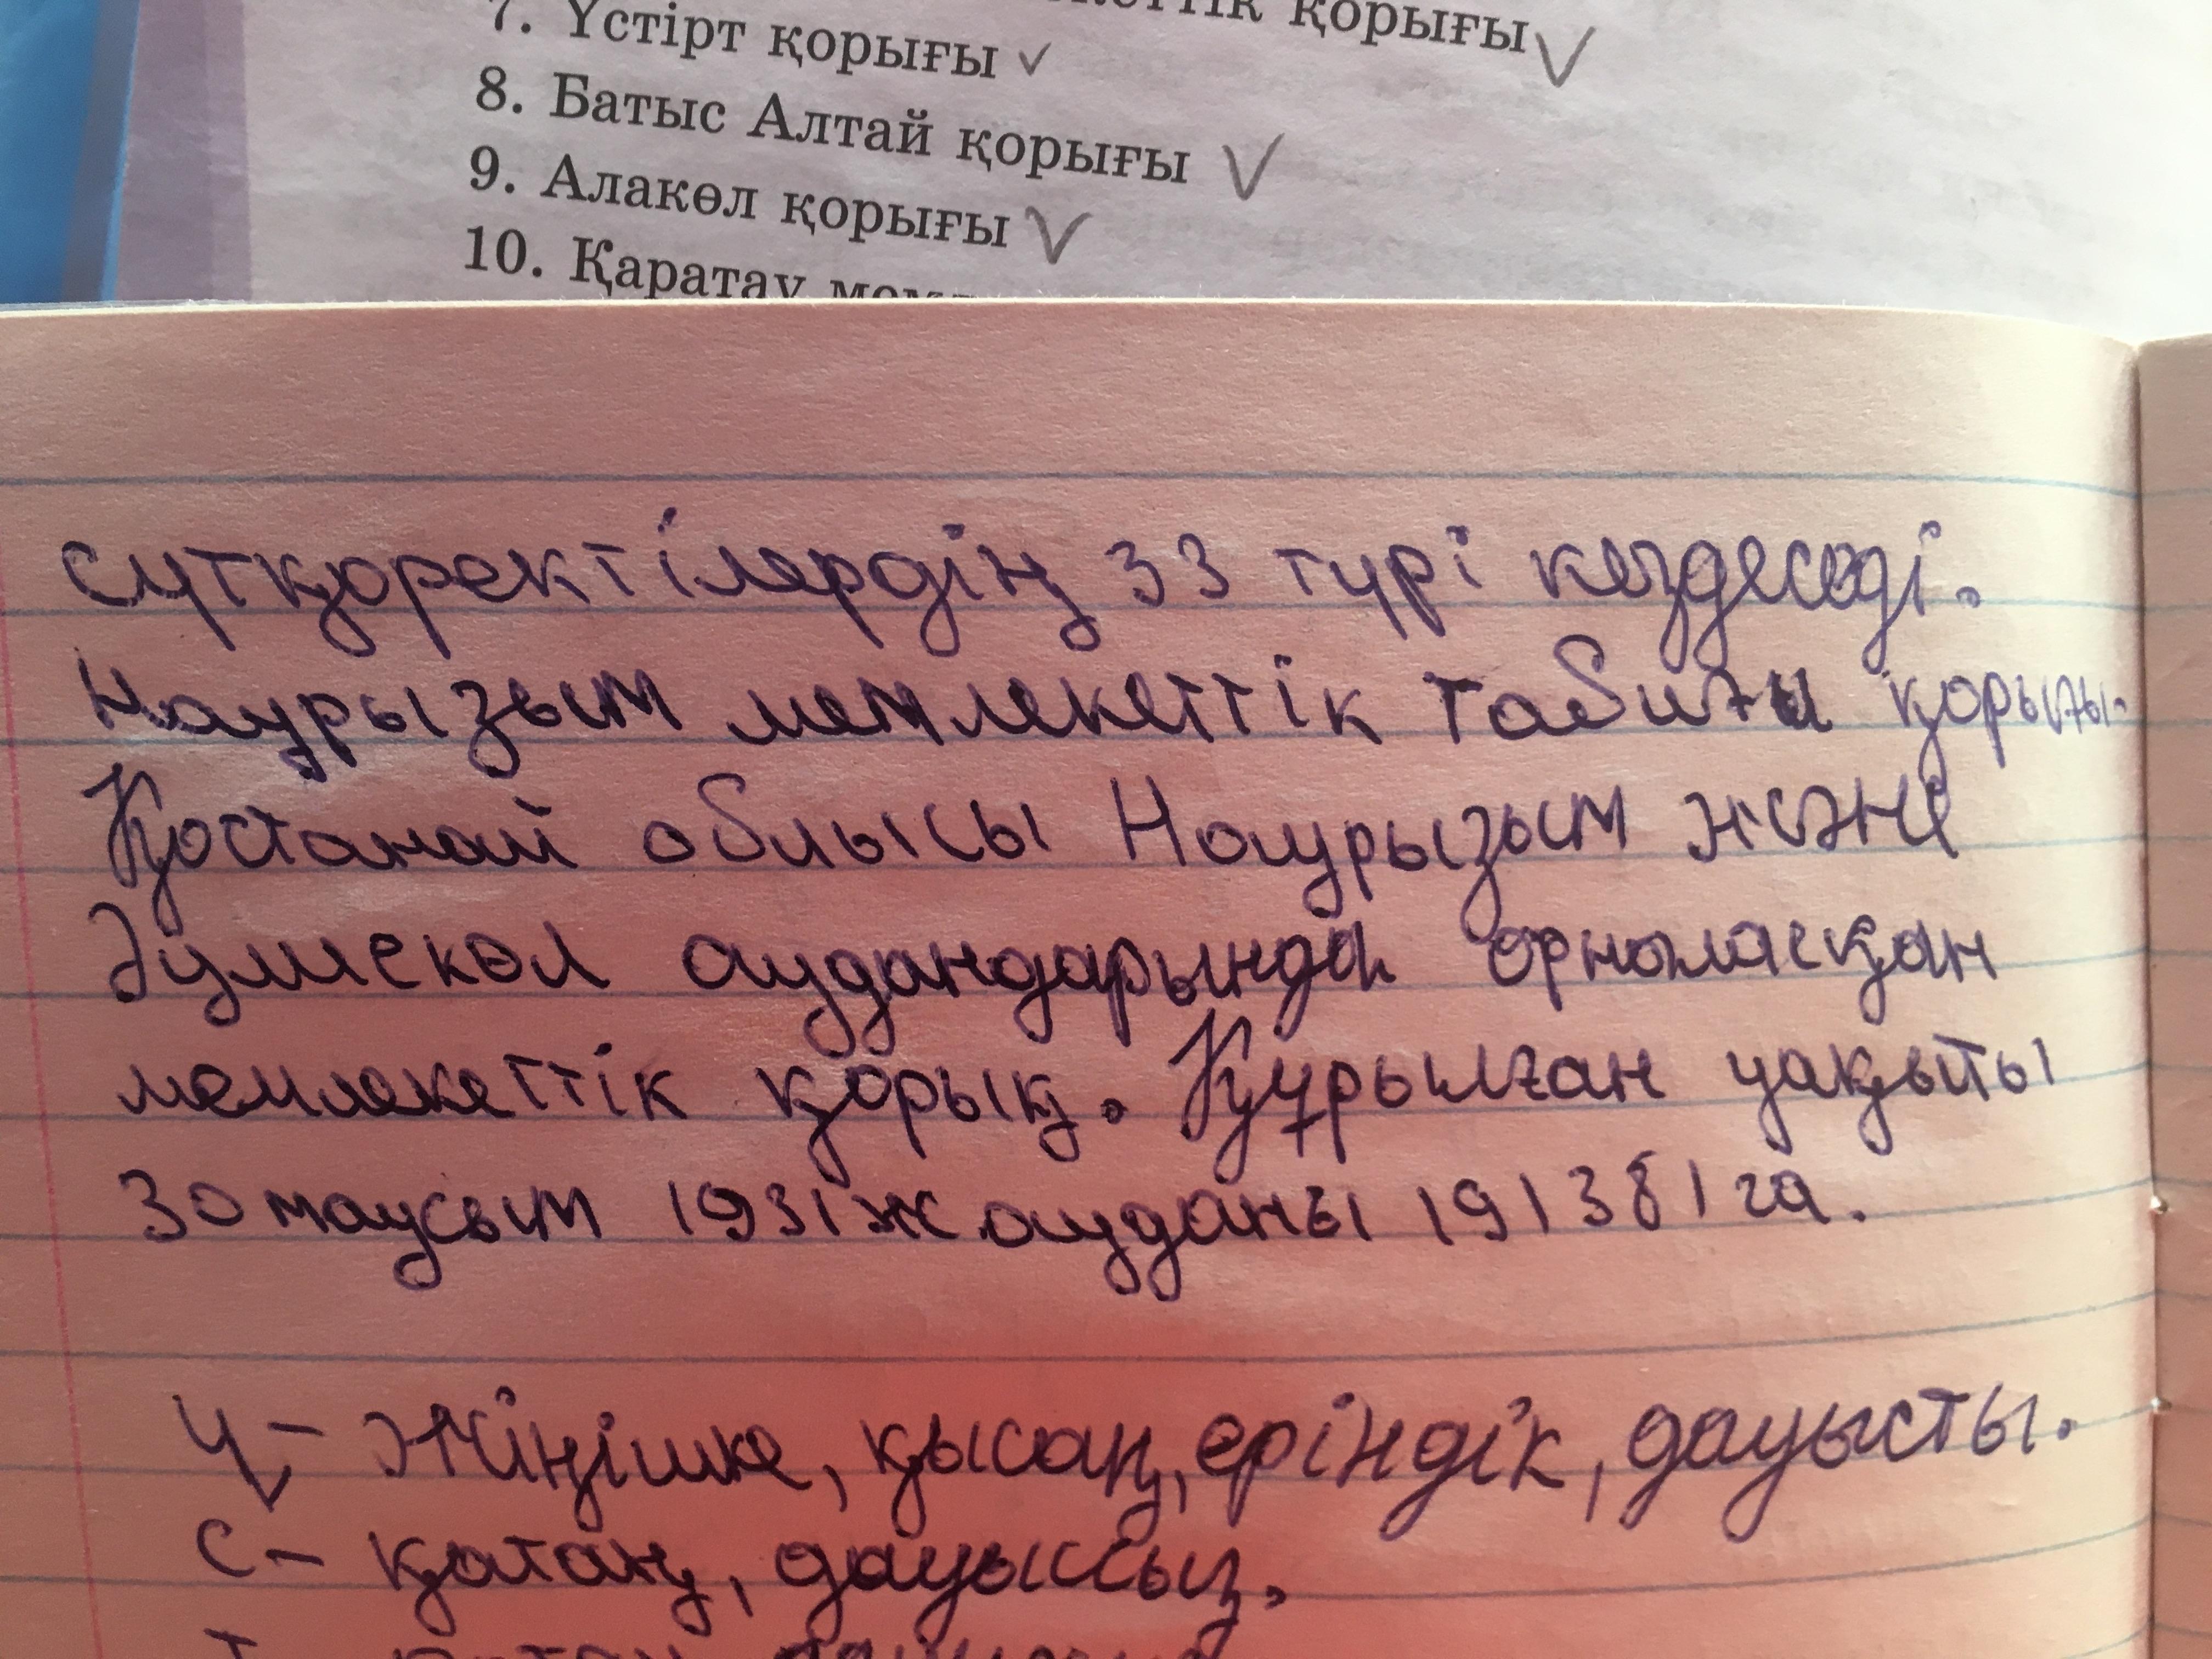 қорығы
7. Үстірт қорығы
8. Батыс Алтай қорығы
9. Алакөл қорығы
10. Қаратау
сүтқоректілердің 33 түрі кездеседі.
Наурызым мемлекеттік табиғи қорығы.
Қостанай облысы Наурызым және
Әулиекөл аудандарында орналасқан
мемлекеттік қорық. Құрылған уақыты
30 маусым 1931ж ауданы 191381 га.
Ү – Жіңішке, қысаң, еріндік, дауысты.
С – қатаң, дауыссыз.